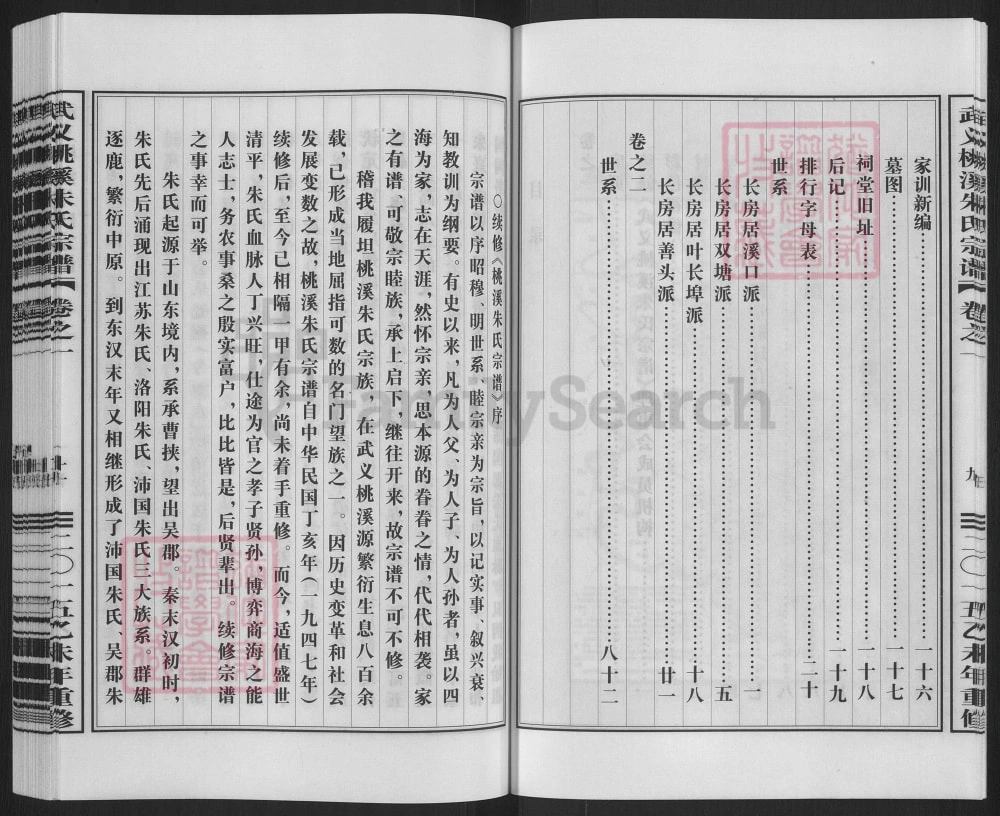 武义桃溪朱氏宗谱
卷之一
二〇一五乙未年重修
家训新编……二十六
墓图……二十七
祠堂旧址……二十八
后记……二十九
排行字母表……二十
世系
长房居溪口派……一
长房居双塘派……五
长房居叶长埠派……十八
长房居善头派……廿一
卷之二
世系……八十二
〇续修《桃溪朱氏宗谱》序
宗谱以序昭穆、明世系、睦宗亲为宗旨，以记实事、叙兴衰、
知教训为纲要。有史以来，凡为人父、为人子、为人孙者，虽以四
海为家，志在天涯，然怀宗亲，思本源的眷眷之情，代代相袭。家
之有谱，可敬宗睦族，承上启下，继往开来，故宗谱不可不修。
稽我履坦桃溪朱氏宗族，在武义桃溪源繁衍生息八百余
载，已形成当地屈指可数的名门望族之一。因历史变革和社会
发展变数之故，桃溪朱氏宗谱自中华民国丁亥年(一九四七年)
续修后，至今已相隔一甲有余，尚未着手重修。而今，适值盛世
清平，朱氏血脉人丁兴旺，仕途为官之孝子贤孙，博弈商海之能
人志士，务农事桑之殷实富户，比比皆是，后贤辈出。续修宗谱
之事幸而可举。
朱氏起源于山东境内，系承曹挟，望出吴郡。秦末汉初时，
朱氏先后涌现出江苏朱氏、洛阳朱氏、沛国朱氏三大族系。群雄
逐鹿，繁衍中原。到东汉末年又相继形成了沛国朱氏、吴郡朱
武义桃溪朱氏宗谱
卷之一
二〇一五乙未年重修
FamilySearch